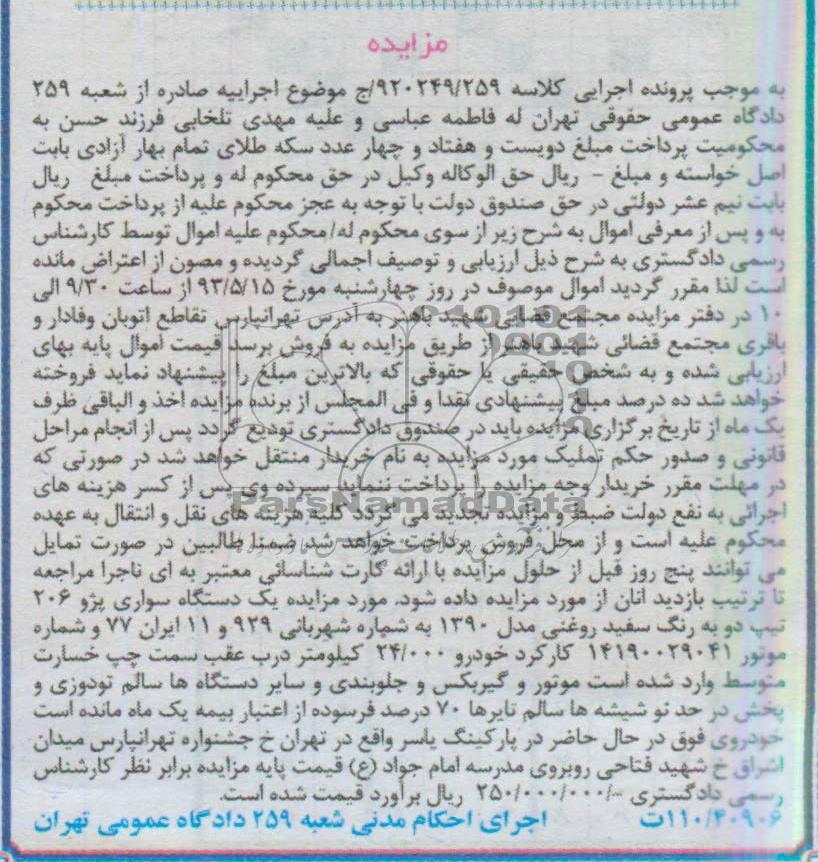 مزایده
به موجب پرونده اجرایی کلاسه ۹۲۰۲۴۹/۲۵۹/ج موضوع اجراییه صادره از شعبه ۲۵۹
دادگاه عمومی حقوقی تهران له فاطمه عباسی و علیه مهدی تلخابی فرزند حسن به
محکومیت پرداخت مبلغ دویست و هفتاد و چهار عدد سکه طلای تمام بهار آزادی بابت
اصل خواسته و مبلغ - ریال حق الوکاله وکیل در حق محکوم له و پرداخت مبلغ ریال
بابت نیم عشر دولتی در حق صندوق دولت با توجه به عجز محکوم علیه از پرداخت محکوم
به و پس از معرفی اموال به شرح زیر از سوی محکوم له/محکوم علیه اموال توسط کارشناس
رسمی دادگستری به شرح ذیل ارزیابی و توصیف اجمالی گردیده و مصون از اعتراض مانده
است لذا مقرر گردید اموال موصوف در روز چهارشنبه مورخ ۹۳/۵/۱۵ از ساعت ۹/۳۰ الی
۱۰ در دفتر مزایده مجتمع قضایی شهید باهنر به آدرس تهرانپارس تقاطع اتوبان وفادار و
باقری مجتمع قضائی شهید باهنر از طریق مزایده به فروش برسد قیمت اموال پایه بهای
ارزیابی شده و به شخص حقیقی یا حقوقی که بالاترین مبلغ را پیشنهاد نماید فروخته
خواهد شد ده درصد مبلغ پیشنهادی نقدا و فی المجلس از برنده مزایده اخذ و الباقی ظرف
یک ماه از تاریخ برگزاری مزایده باید در صندوق دادگستری تودیع گردد پس از انجام مراحل
قانونی و صدور حکم تملیک مورد مزایده به نام خریدار منتقل خواهد شد در صورتی که
در مهلت مقرر خریدار وجه مزایده را پرداخت ننماید سپرده وی پس از کسر هزینه های
اجرائی به نفع دولت ضبط و مزایده تجدید می گردد کلیه هزینه های نقل و انتقال به عهده
محکوم علیه است و از محل فروش پرداخت خواهد شد ضمنا طالبین در صورت تمایل
می توانند پنج روز قبل از حلول مزایده با ارائه کارت شناسائی معتبر به ای ناجرا مراجعه
تا ترتیب بازدید آنان از مورد مزایده داده شود. مورد مزایده یک دستگاه سواری پژو ۲۰۶
تیپ دو به رنگ سفید روغنی مدل ۱۳۹۰ به شماره شهربانی ۹۲۹ و ۱۱ ایران ۷۷ و شماره
موتور ۱۴۱۹۰۰۲۹۰۴۱ کارکرد خودرو ۲۴/۰۰۰ کیلومتر درب عقب سمت چپ خسارت
متوسط وارد شده است موتور و گیربکس و جلوبندی و سایر دستگاه ها سالم تودوزی و
پخش در حد نو شیشه ها سالم تایرها ۷۰ درصد فرسوده از اعتبار بیمه یک ماه مانده است
خودروی فوق در حال حاضر در پارکینگ یاسر واقع در تهران خ جشنواره تهرانپارس میدان
اشراق خ شهید فتاحی روبروی مدرسه امام جواد (ع) قیمت پایه مزایده برابر نظر کارشناس
رسمی دادگستری -/۲۵۰/۰۰۰/۰۰۰ ریال برآورد قیمت شده است.
۱۱۰/۴۰۹۰۶ت اجرای احکام مدنی شعبه ۲۵۹ دادگاه عمومی تهران
ParsNamadData